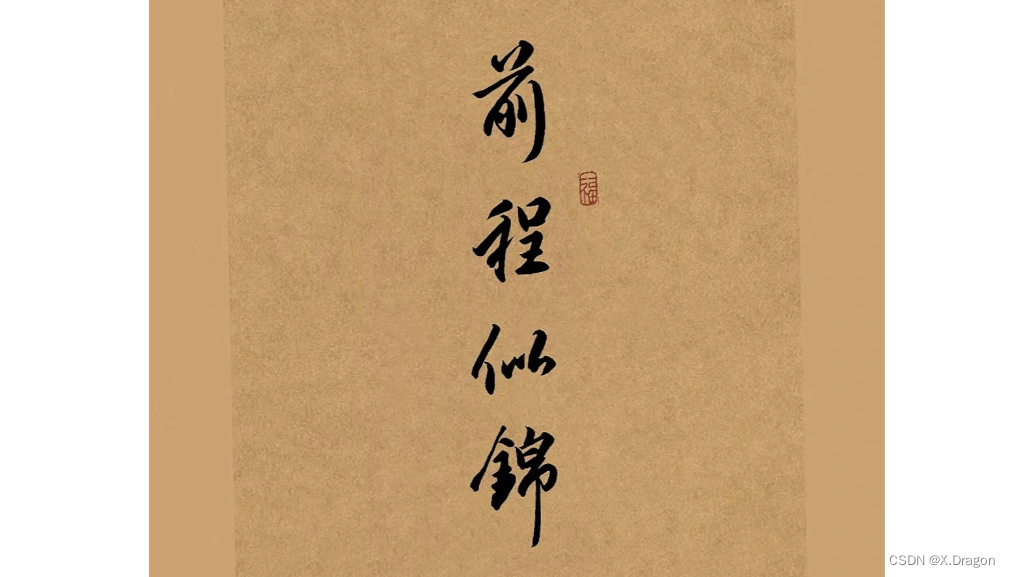 前程似錦
CSDN @X.Dragon